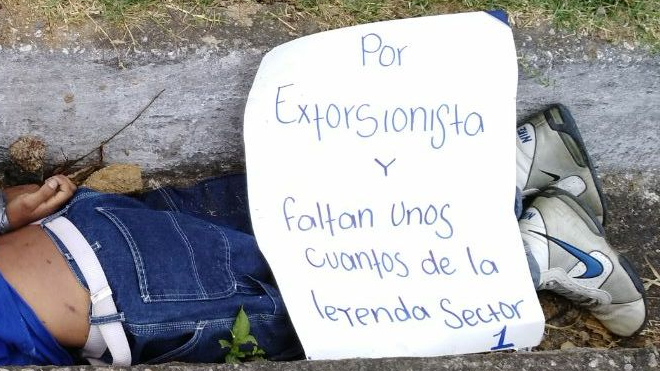 Por
Extorsionista
Y
faltan unos
cuantos de la
leyenda Sector
1
NIKE